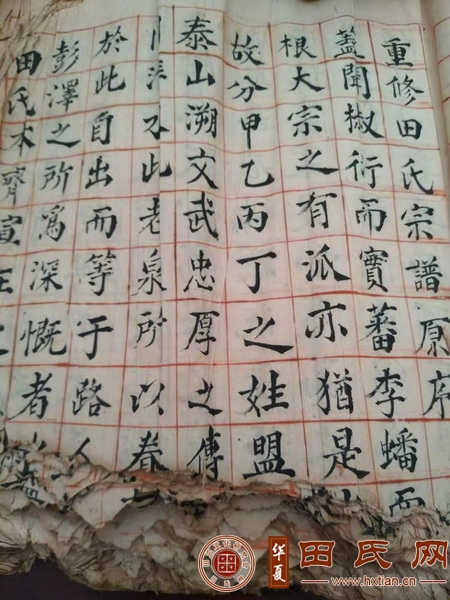 重修田氏宗譜原序
蓋聞椒衍而實蕃李蟠而
根大宗之有派亦猶是
故分甲乙丙丁之姓盟
泰山溯文武忠厚之傳
此老泉所以眷
於此自出而等于路人
彭澤之所寫深慨者
田氏本齊宣
華夏
田氏网
www.hxtian.cn